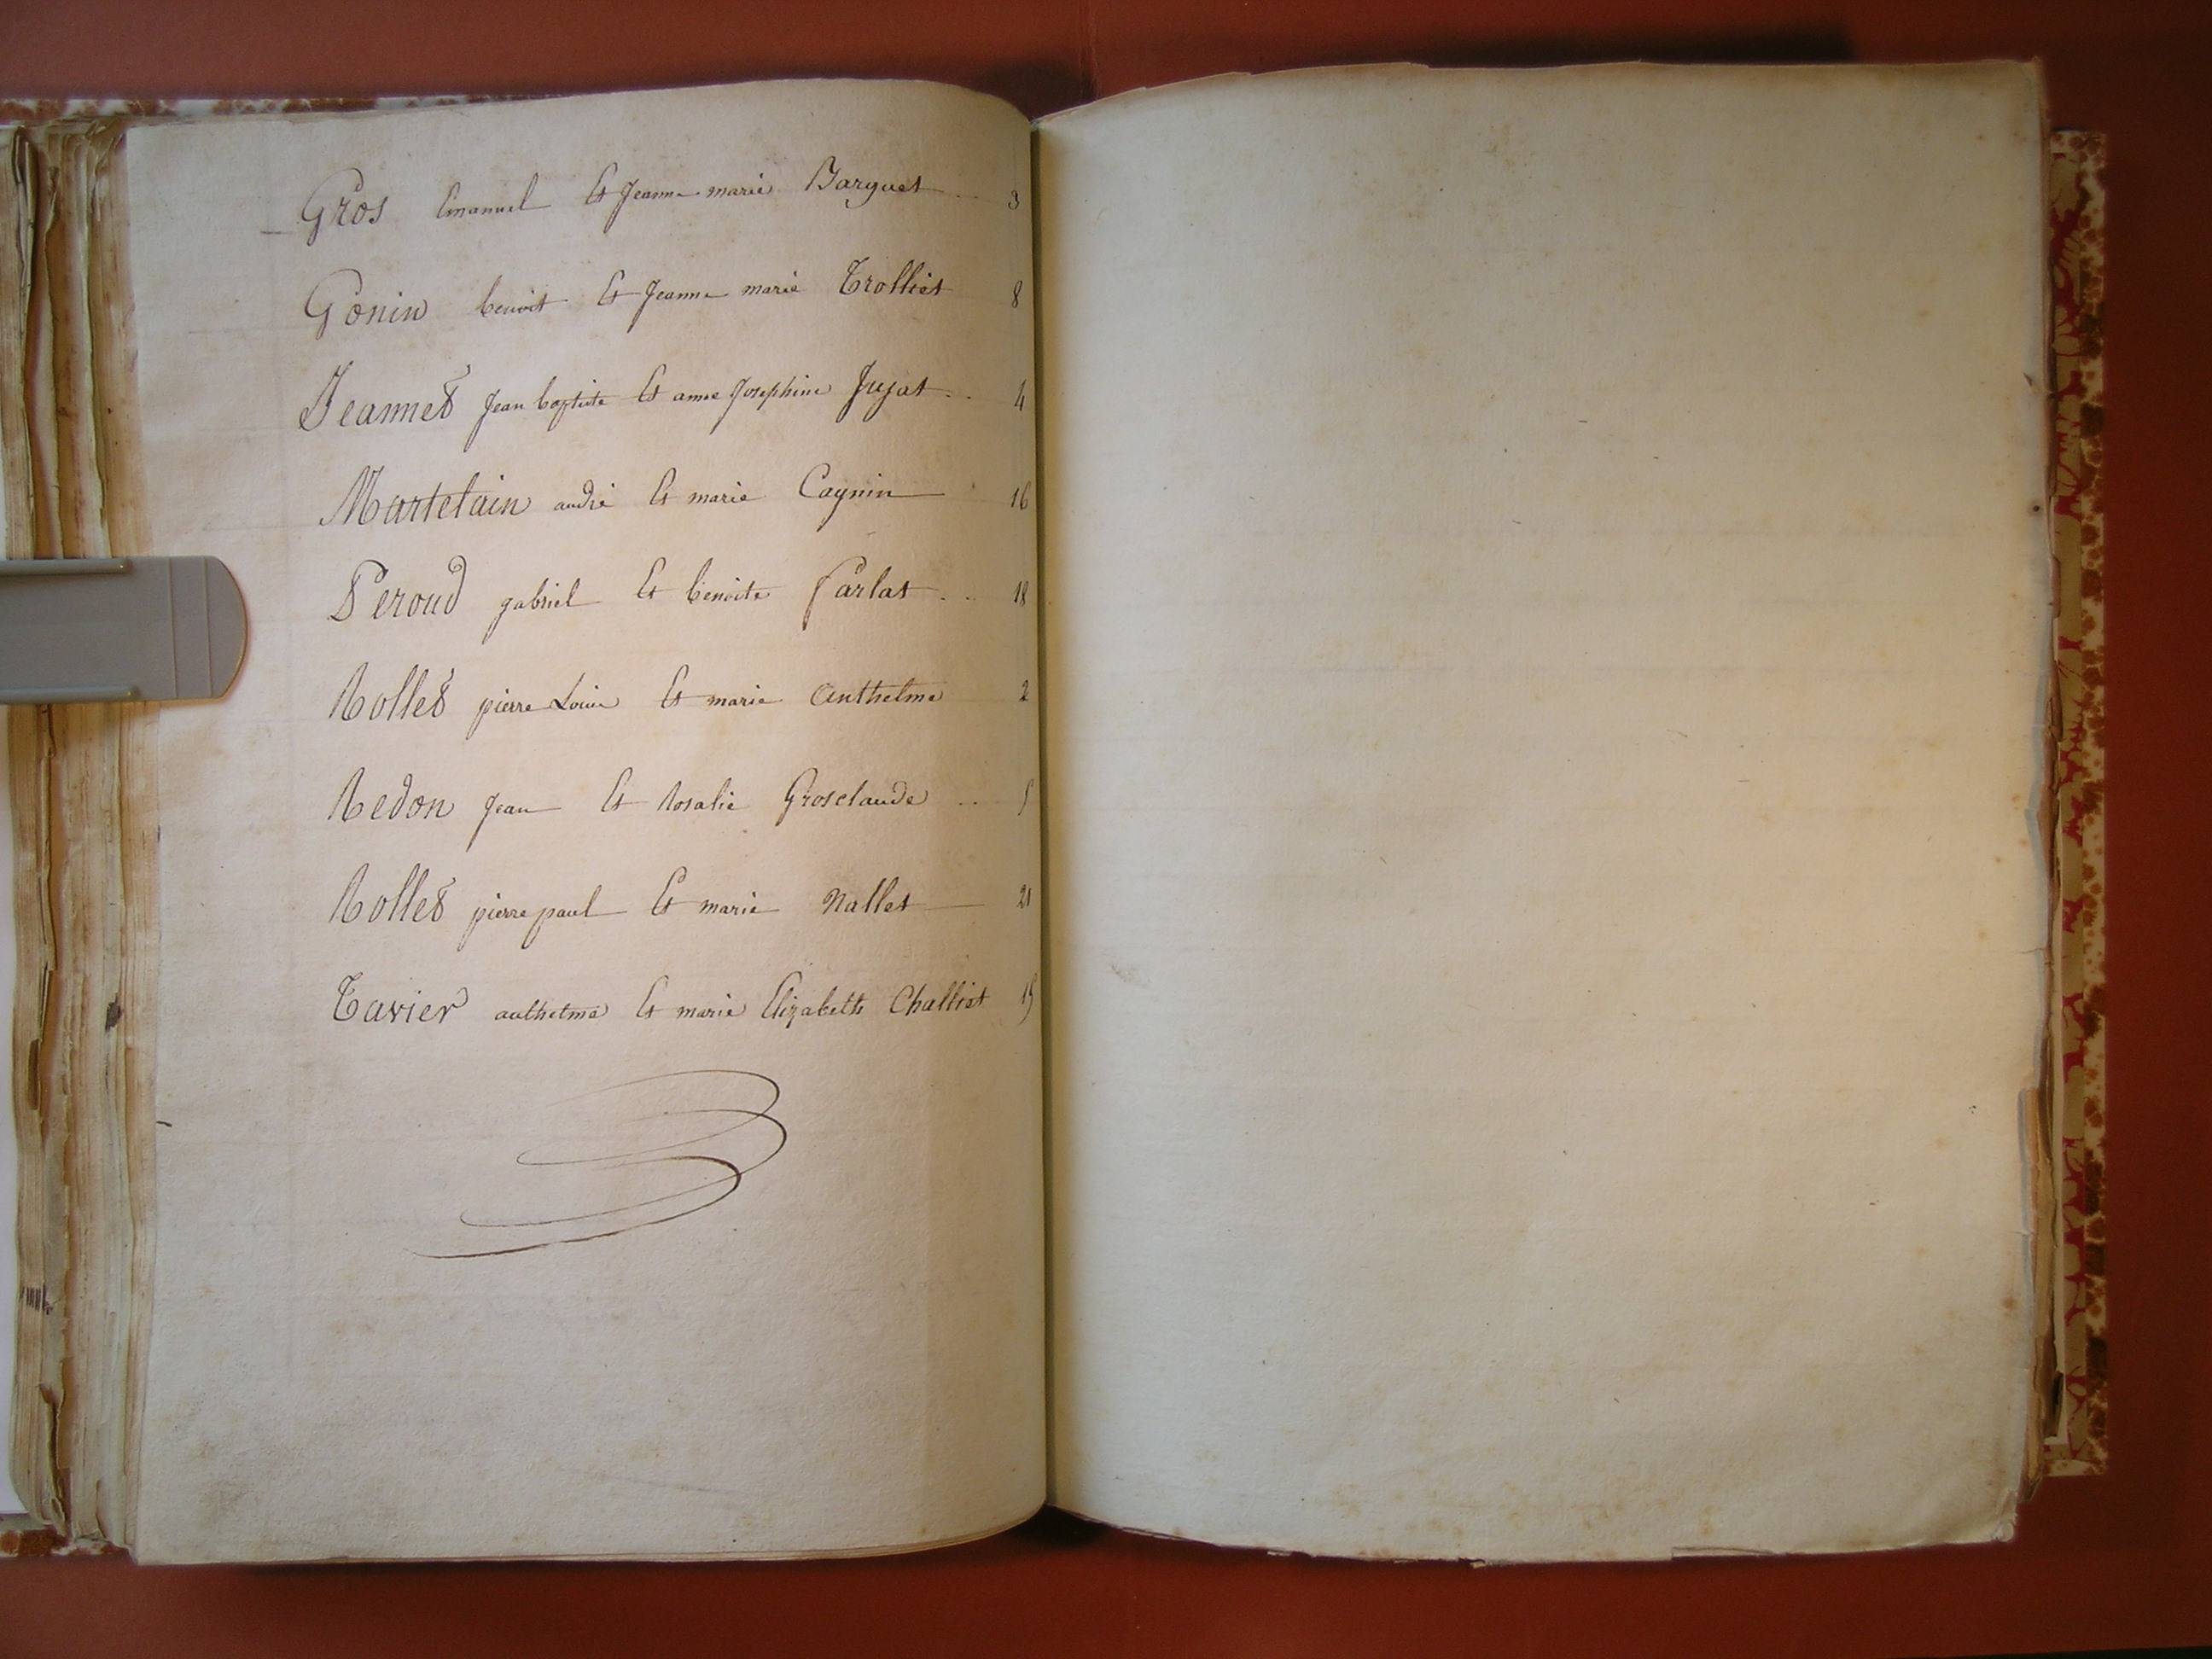 Gros Emanuel Et Jeanne marie Barguet .. 3
Gonin benoit Et Jeanne marie Trolliet 8
Jeannet Jean baptiste Et anne Josephine Jujat .. 4
Martelain andré Et marie Cagnin 16
Peroud gabriel Et benoite Parlat .. 18
Rollet pierre Louis Et marie Anthelme 2
Redon Jean Et Rosalie Grosclaude .. 5
Rollet pierre paul Et marie Nallet 21
Tavier anthelme Et marie Elizabeth Challiet 15